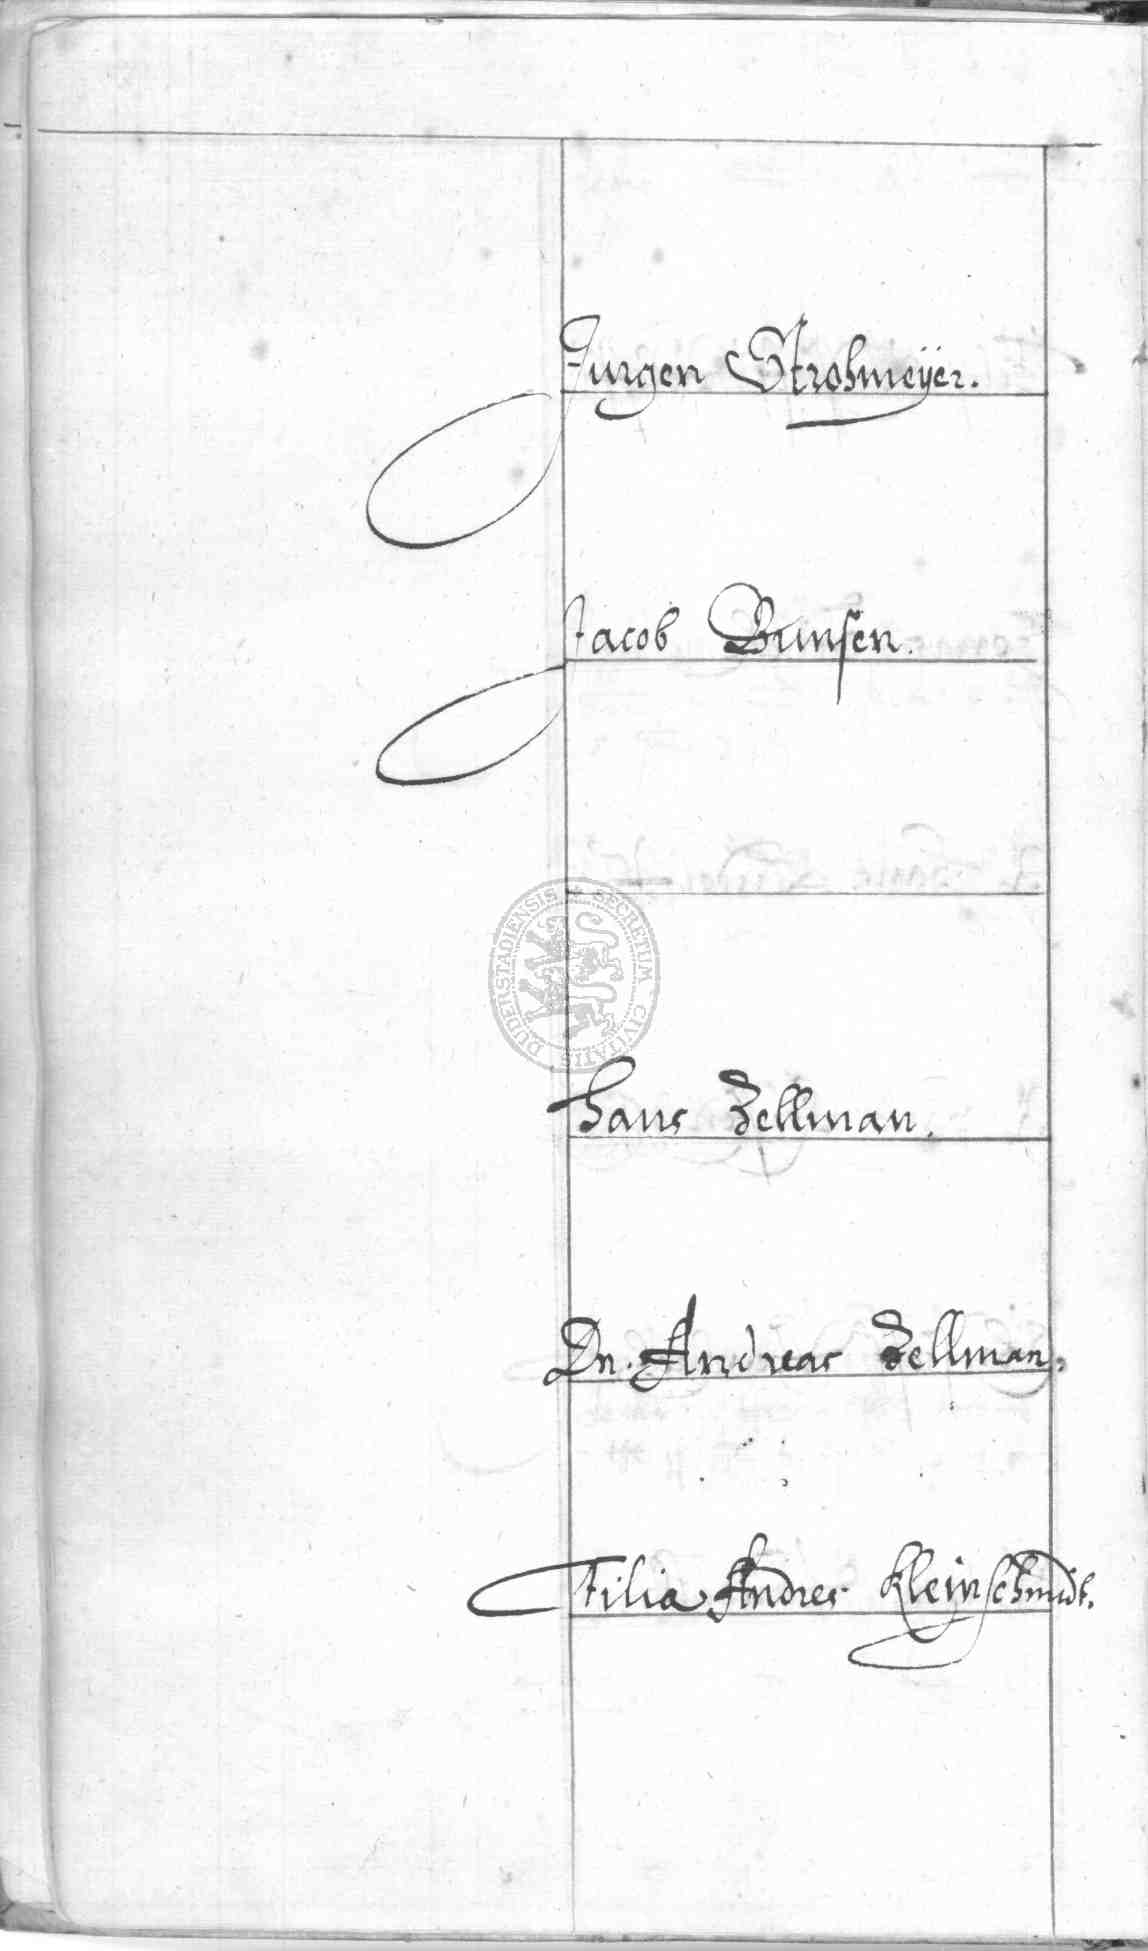 Jurgen Strohmeÿer.
Jacob Bunsen.
SECRETUM CIVITATIS DUDERSTADIENSIS
Hans Zellman.
Dn. Andreas Zellman.
Filia Andres Kleinschmidt.